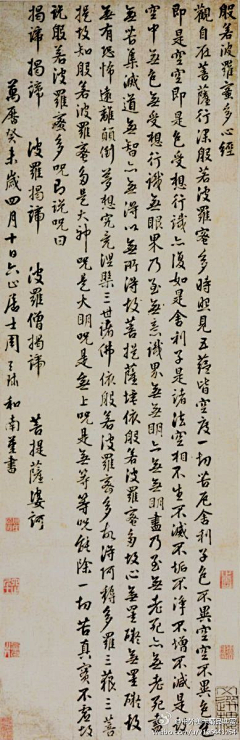 般若波羅蜜多心經
觀自在菩薩行深般若波羅蜜多時照見五蘊皆空度一切苦厄舍利子色不異空空不異色
即是空空即是色受想行識亦復如是舍利子是諸法空相不生不滅不垢不淨不增不減是
空中無色無受想行識無眼界乃至無意識界無無明亦無無明盡乃至無老死亦無老死盡
無苦集滅道無智亦無得以無所得故菩提薩埵依般若波羅蜜多故心無罣礙無罣礙故
無有恐怖遠離顛倒夢想究竟涅槃三世諸佛依般若波羅蜜多故得阿耨多羅三藐三菩
提故知般若波羅蜜多是大神呪是大明呪是無上呪是無等等呪能除一切苦真實不虛故
說般若波羅蜜多呪即說呪曰
揭諦揭諦 波羅揭諦 波羅僧揭諦 菩提薩婆訶
萬曆癸未歲四月十日六止居士周天球和南墨書